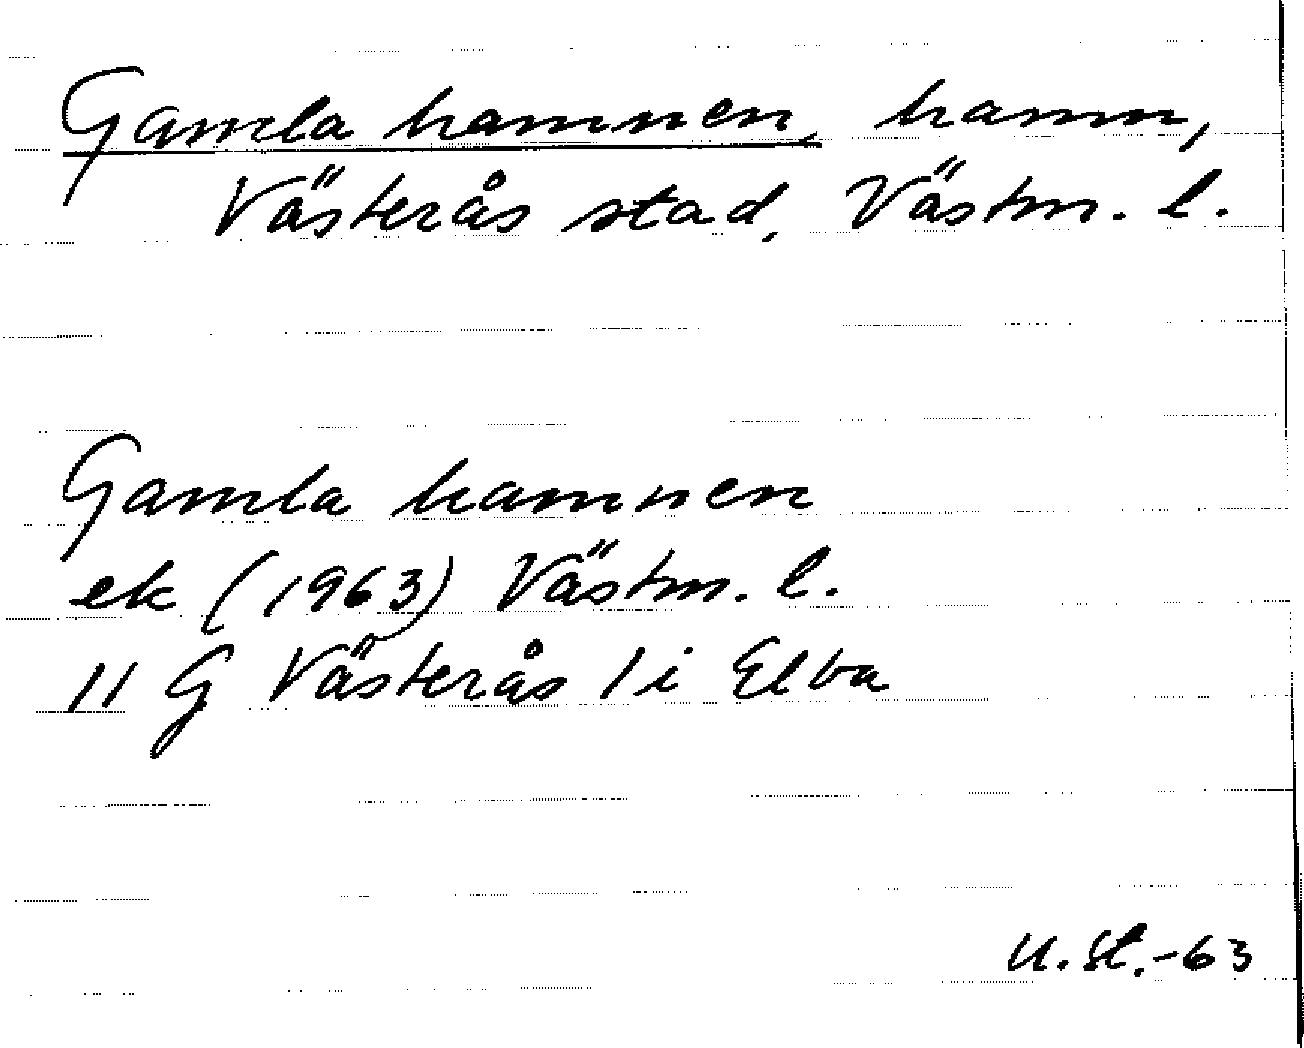 Gamla hamnen, hamn,
Västerås stad, Västm. l.
Gamla hamnen
ek (1963) Västm. l.
11 G Västerås 1 i Elba
U. St. -63